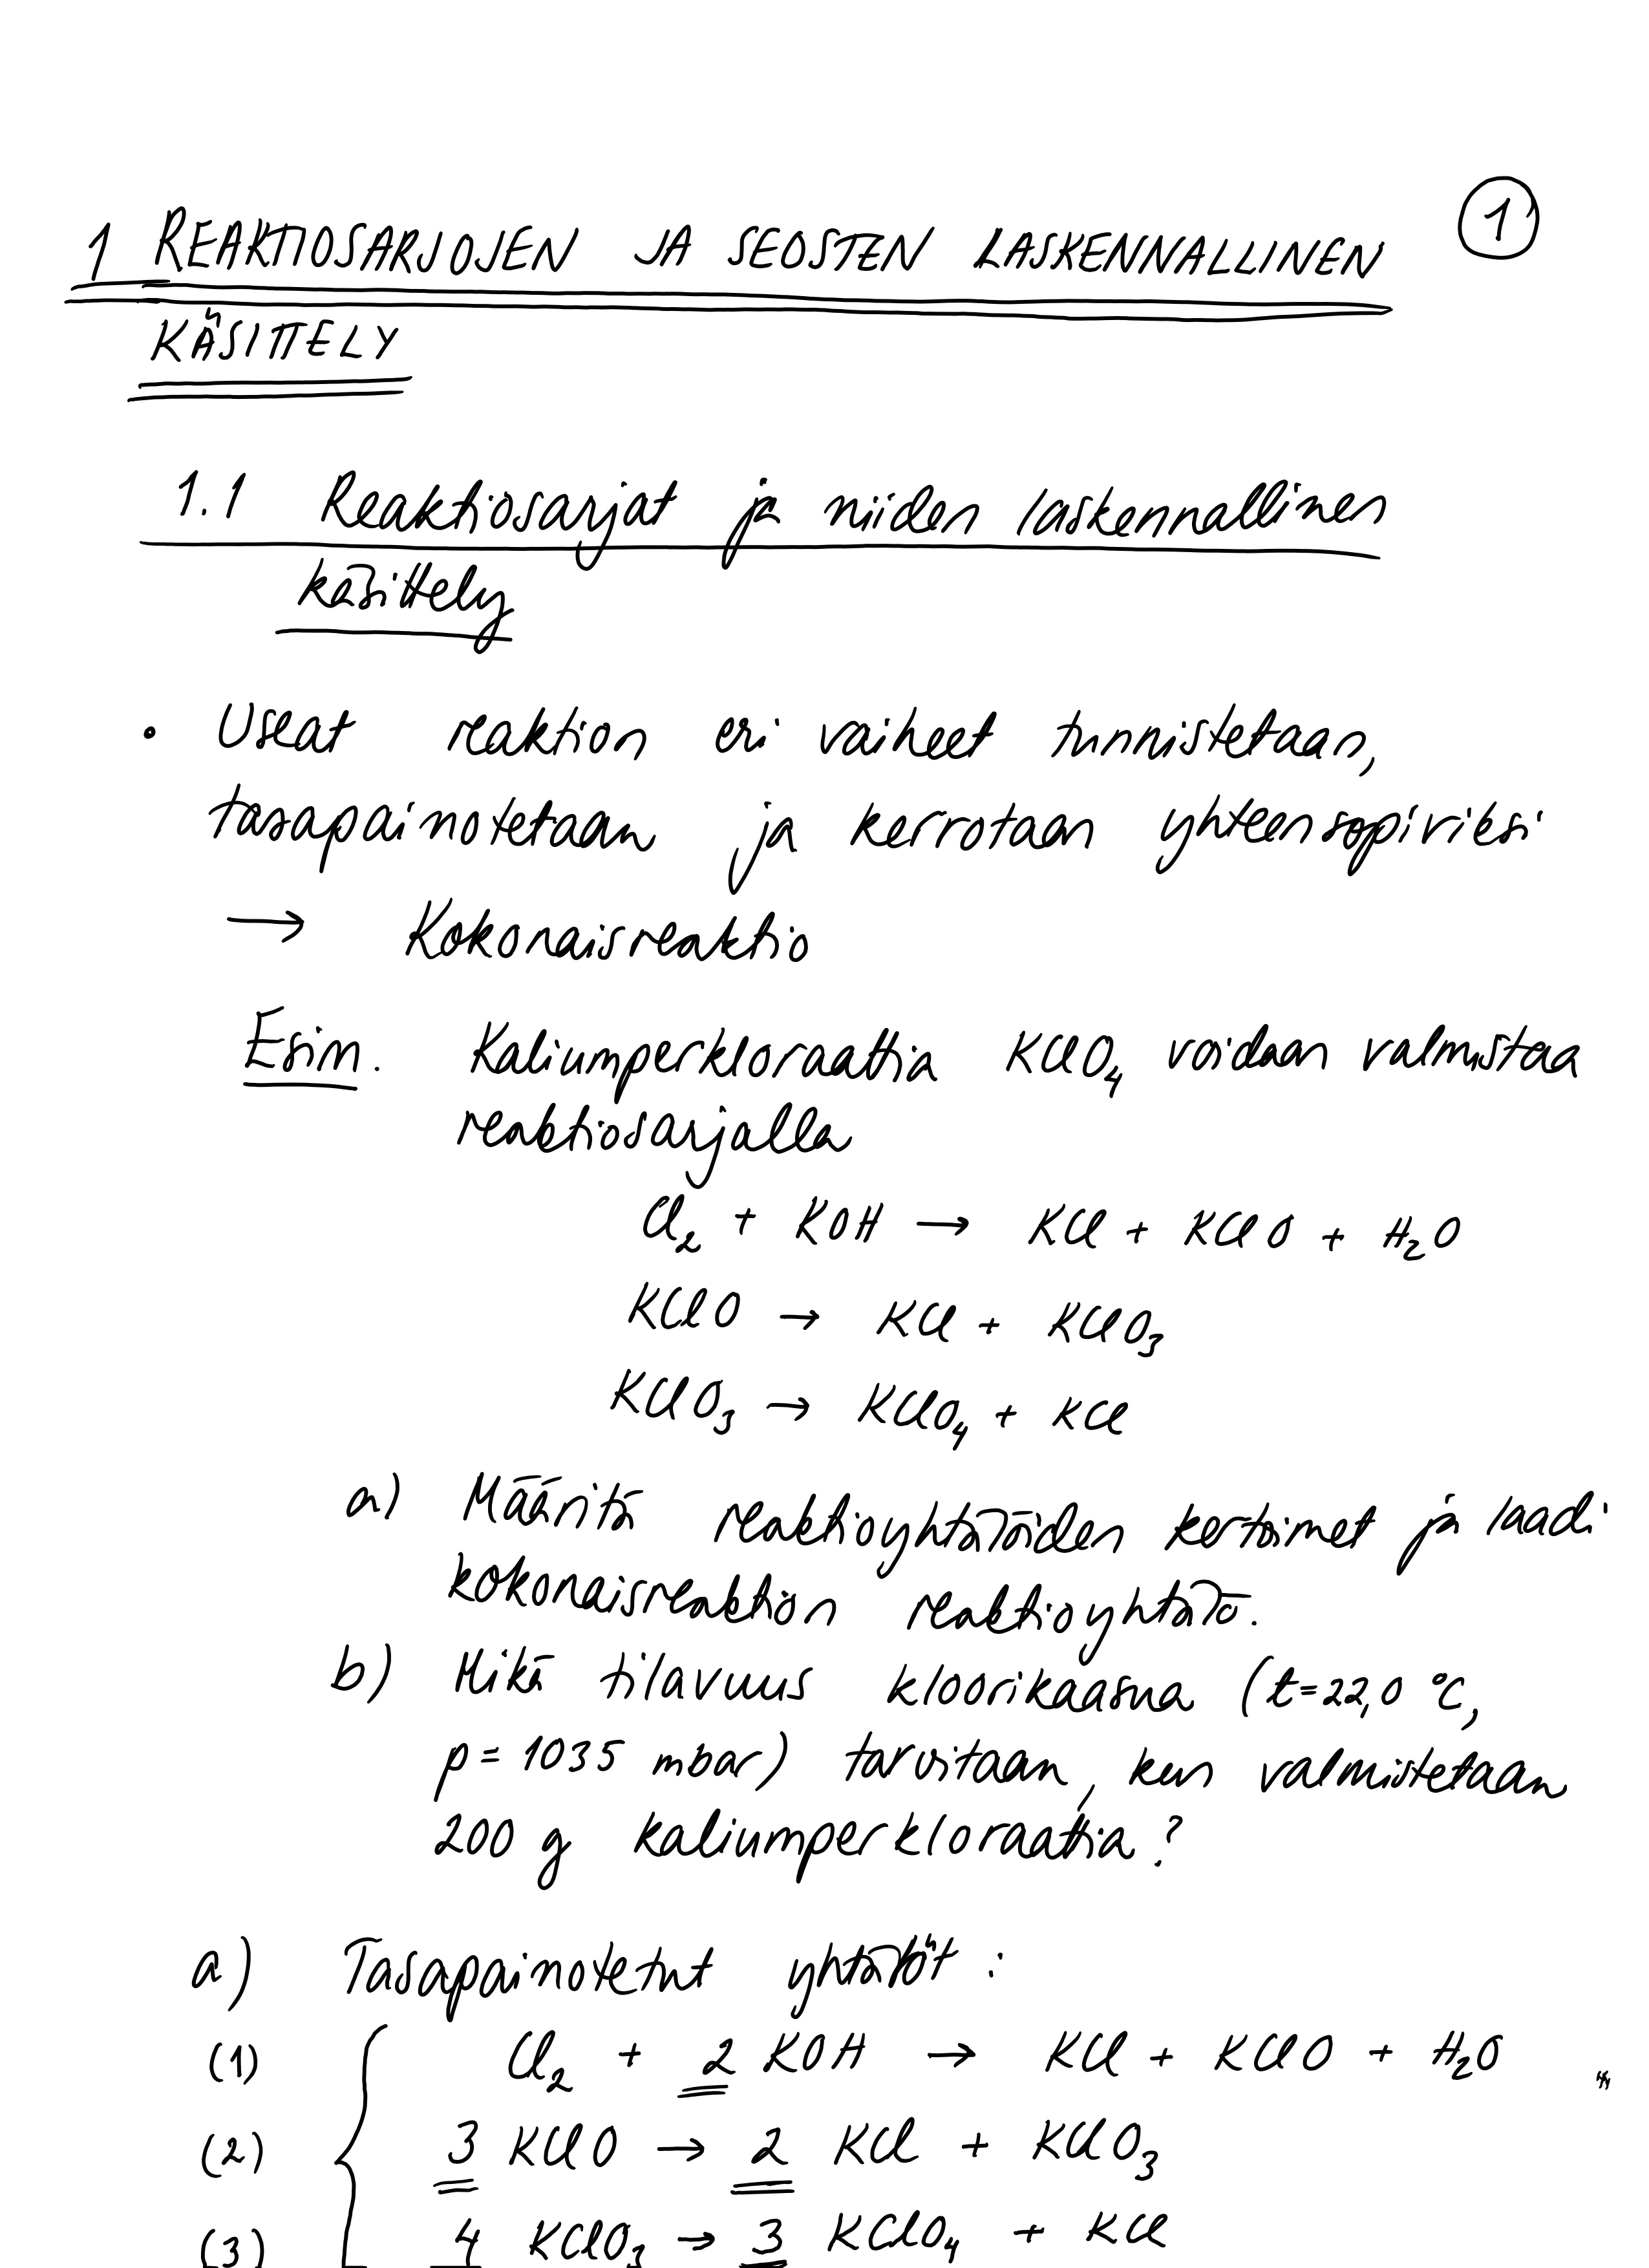 1
1 REAKTIOSARJOJEN JA SEOSTEN LASKENNALLINEN
KÄSITTELY
1.1 Reaktiosarjat ja niiden laskennallinen
käsittely
• Useat reaktion eri vaiheet tunnistetaan,
tasapainotetaan ja kerrotaan yhteensopiviksi
→ Kokonaisreaktio
Esim. Kaliumperkloraattia KClO₄ voidaan valmistaa
reaktiosarjalla
Cl₂ + KOH → KCl + KClO + H₂O
KClO → KCl + KClO₃
KClO₃ → KClO₄ + KCl
a) Määritä reaktioyhtälöiden kertoimet ja laadi
kokonaisreaktion reaktioyhtälö.
b) Mikä tilavuus kloorikaasua (t=22,0 °C,
p = 1035 mbar) tarvitaan, kun valmistetaan
200 g kaliumperkloraattia?
a) Tasapainotetut yhtälöt :
(1) Cl₂ + 2 KOH → KCl + KClO + H₂O
(2) 3 KClO → 2 KCl + KClO₃
(3) 4 KClO₃ → 3 KClO₄ + KCl